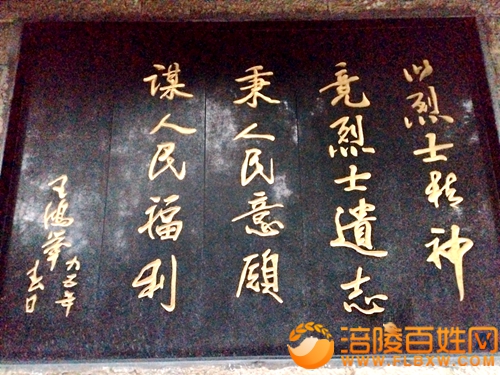 以烈士精神
竟烈士遺志
秉人民意願
谋人民福利
王鴻举
九五年
春日
涪陵百姓网
WWW.FLBXW.COM